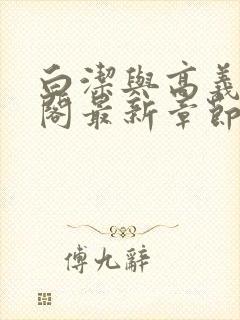 白潔與高義
閣最新章節
傅九辭